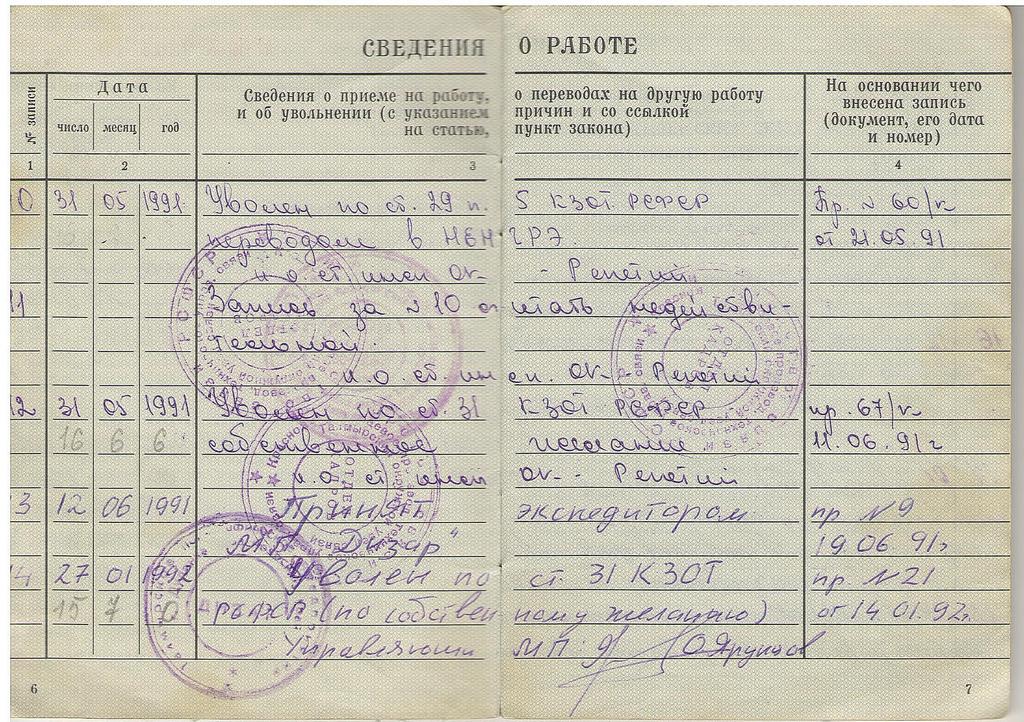 СВЕДЕНИЯ О РАБОТЕ
№ записи
Дата
число месяц год
Сведения о приеме на работу, о переводах на другую работу
и об увольнении (с указанием причин и со ссылкой
на статью, пункт закона)
На основании чего
внесена запись
(документ, его дата
и номер)
1 2 3 4
0 31 05 1991 Уволен по ст. 29 п. 5 КЗОТ РСФСР Пр. № 60/к
переводом в от 21.05.91
и.о. ст. инсп. ок - Репетий
11 Запись за №10 считать недействи-
тельной.
и.о. ст. инсп. ок - Репетий
12 31 05 1991 Уволен по ст. 31 КЗОТ РСФСР пр. 67/к
16 6 6 собственное желание 11.06.91г
и.о. ст. инсп ок - Репетий
3 12 06 1991 Принят экспедитором пр №9
"Дизар" 19.06.91г
14 27 01 1992 Уволен по ст. 31 КЗОТ пр. №21
15 7 0 РСФСР (по собственному желанию) от 14.01.92г.
Управляющий МП
6 7